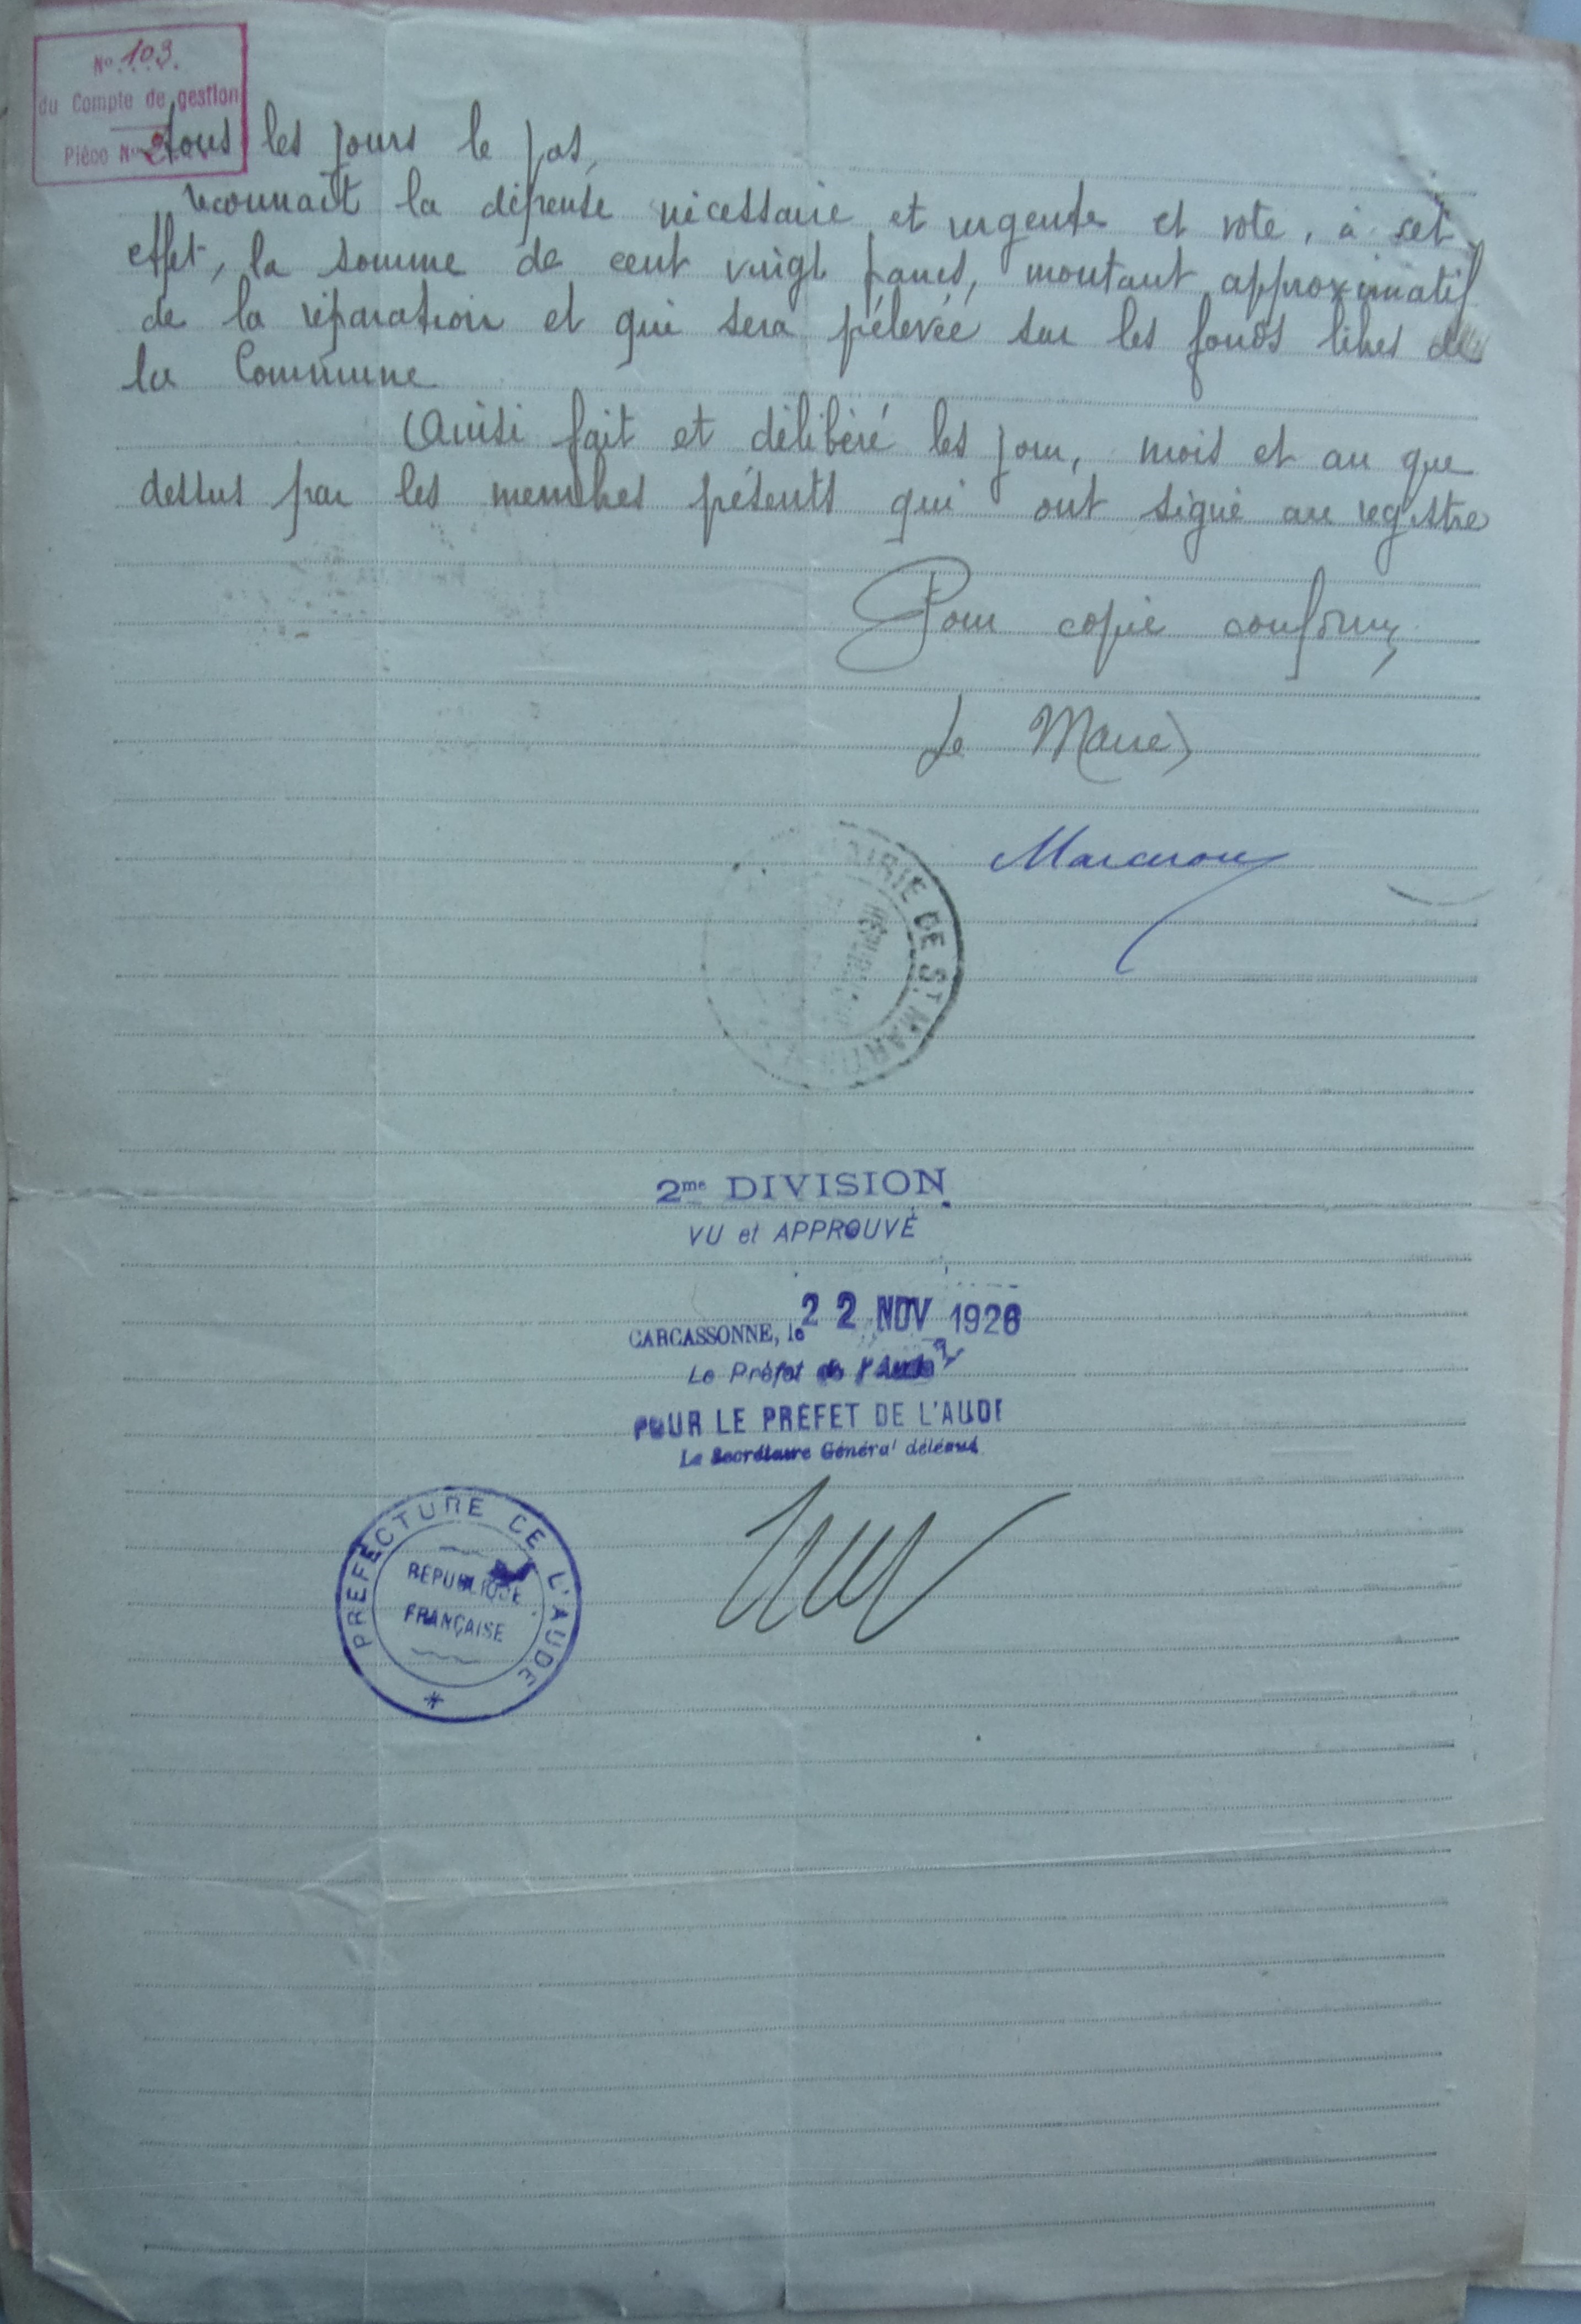 N° 103.
du Compte de gestion
Pièce N° 2
tous les jours le pas,
reconnaît la dépense nécessaire et urgente et vote, à cet
effet, la somme de cent vingt francs, montant approximatif
de la réparation et qui sera prélevée sur les fonds libres de
la Commune
Ainsi fait et délibéré les jour, mois et an que
dessus par les membres présents qui ont signé au registre
Pour copie conforme,
Le Maire,
MAIRIE DE ST MARTIN
2me DIVISION
VU et APPROUVÉ
CARCASSONNE, le 22 NOV 1926
Le Préfet de l'Aude
POUR LE PREFET DE L'AUDE
Le Secrétaire Général délégué
PREFECTURE DE L'AUDE
REPUBLIQUE
FRANÇAISE